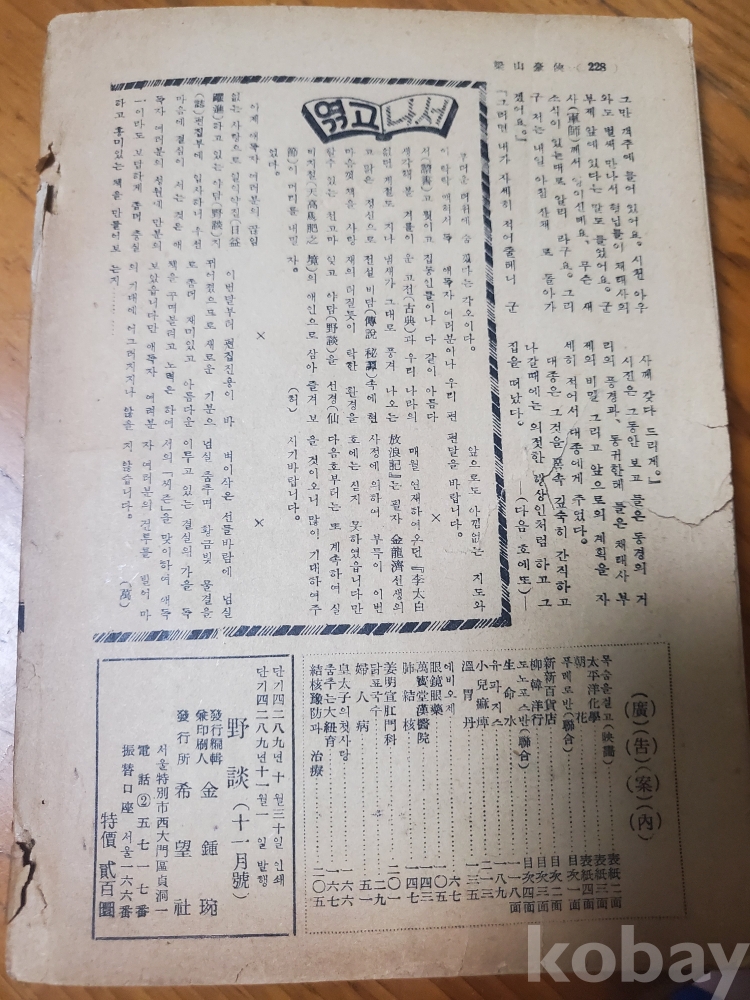 梁山豪俠 (228)
그만 객주에 들어 있어요. 시천 아우
와도 벌써 만나서 형님들이 채태사의
부께 앞에 있다는 말도 들었어요. 군
사(軍師)께서 말이신데요, 무슨 재
소식이 있는대로 알리라구요. 그리
구 저는 내일 아침 산채로 돌아가
겠어요.」
「그러면 내가 자세히 적어줄테니 군
사께 갖다 드리게.」
시진은 그동안 보고 들은 동경의 거
리의 풍경과, 동귀한테 들은 채태사 부
제의 비밀 그리고 앞으로의 계획을 자
세히 적어서 대종에게 주었다.
대종은 그것을 품속 깊숙히 간직하고
나갈때에는 의젓한 행상인처럼 하고 그
집을 떠났다. ―(다음 호에또)―
엮고나서
무더운 더위에 숨
이 탁탁 매려서 독
서(讀書)고 뭣이고
생각해볼 겨를이 운
없던 계절도 지나
고 맑은 정신으로
마음껏 책을 사랑
할수 있는 천고마
비지절(天高馬肥之
節)이 머리를 내밀
었다.
애독자 여러분이나 우리 편
집동인들이나 다 같이 아름다
고전(古典)과 우리 나라의
냄새가 그대로 풍겨 나오는
전설 비담(傳說 秘譚)속에 현
재의 러질듯이 탁한 환경을
잊고 야담(野談)을 선경(仙
境)의 애인으로 삼아 즐겨 보
자. (許)
×
이제 애독자 여러분의 끊임
없는 사랑으로 일익약진(日益
躍進)하고 있는 야담(野談)지
(誌) 편집부에 입사하니 우선
마음에 결심의 서는 것은 애
독자 여러분의 성원에 만분의
일이라도 보답하게 좀더 충실
하고 흥미있는 책을 만들어보
는지
이번달부터 편집진용이 바
뀌어졌으므로 새로운 기분으
로 좀더 재미있고 아름다운
책을 꾸며볼려고 노력은 하여
보았읍니다만 애독자 여러분
의 기대에 어그러지지나 않을
지
×
벼이삭은 선들바람에 넘실
넘실 춤추며 황금빛 물결을
이루고 있는 결실의 가을 독
서의 「씨즌」을 맞이하여 애독
자 여러분의 건투를 빌어 마
지 않습니다. (萬)
앞으로도 아낌없는 지도와
편달을 바랍니다.
×
매월 연재하여오던 『李太白
放浪記』는 필자 金龍濟선생의
사정에 의하여 부득이 이번
호에는 싣지 못하였읍니다만
다음호부터는 또 계속하여 실
을 것이오니 많이 기대하여주
시기바랍니다.
(廣)(告)(案)(內)
목숨을걸고(映畵)……表紙二面
太平洋化學……表紙三面
朝花……表紙四面
푸메로반(聯合)……目次一面
新新百貨店……目次二面
柳韓洋行……目次三面
도노고스반(聯合)……目次四面
生命水……一一八面
유파지스……一八九
小兒麻痺……二一三
溫胃丹……一三五
에비오제……六七
眼鏡眼藥……一〇五
萬寶堂漢醫院……一四三
肺結核……一四七
姜明宣肛門科……二〇一
닭표국수……二九
婦人病……五一
皇太子의첫사랑……一六六
춤추는大紐育……一六七
結核豫防과 治療……二〇五
단기四二八九년 十월三十일 인쇄
단기四二八九년十一월 一일 발행
野談 (十一月號)
發行編輯兼印刷人 金鍾琬
發行所 希望社
서울特別市西大門區貞洞一
電話②五七一七番
振替口座 서울一六六番
特價 貳百圜
kobay